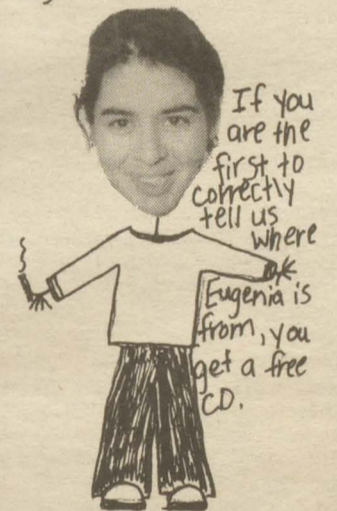 If you
are the
first to
correctly
tell us
where
Eugenia is
from, you
get a free
CD.